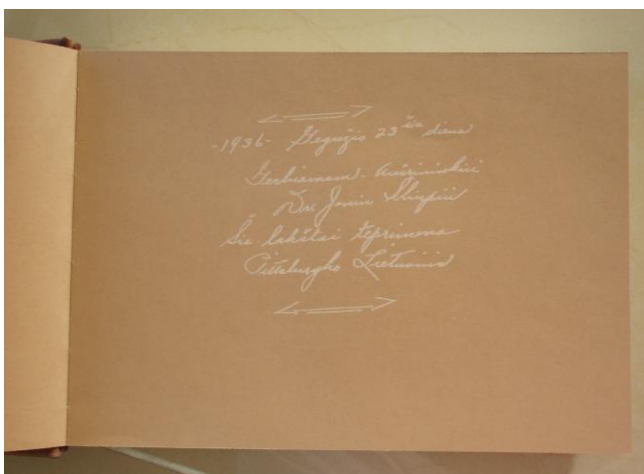 -1936- Gegužio 23čia diena
Gerbiamam. Aušrininkui
Dr. Jonui Šliupui
Šie lakštai teprimena
Pittsburgho Lietuvius